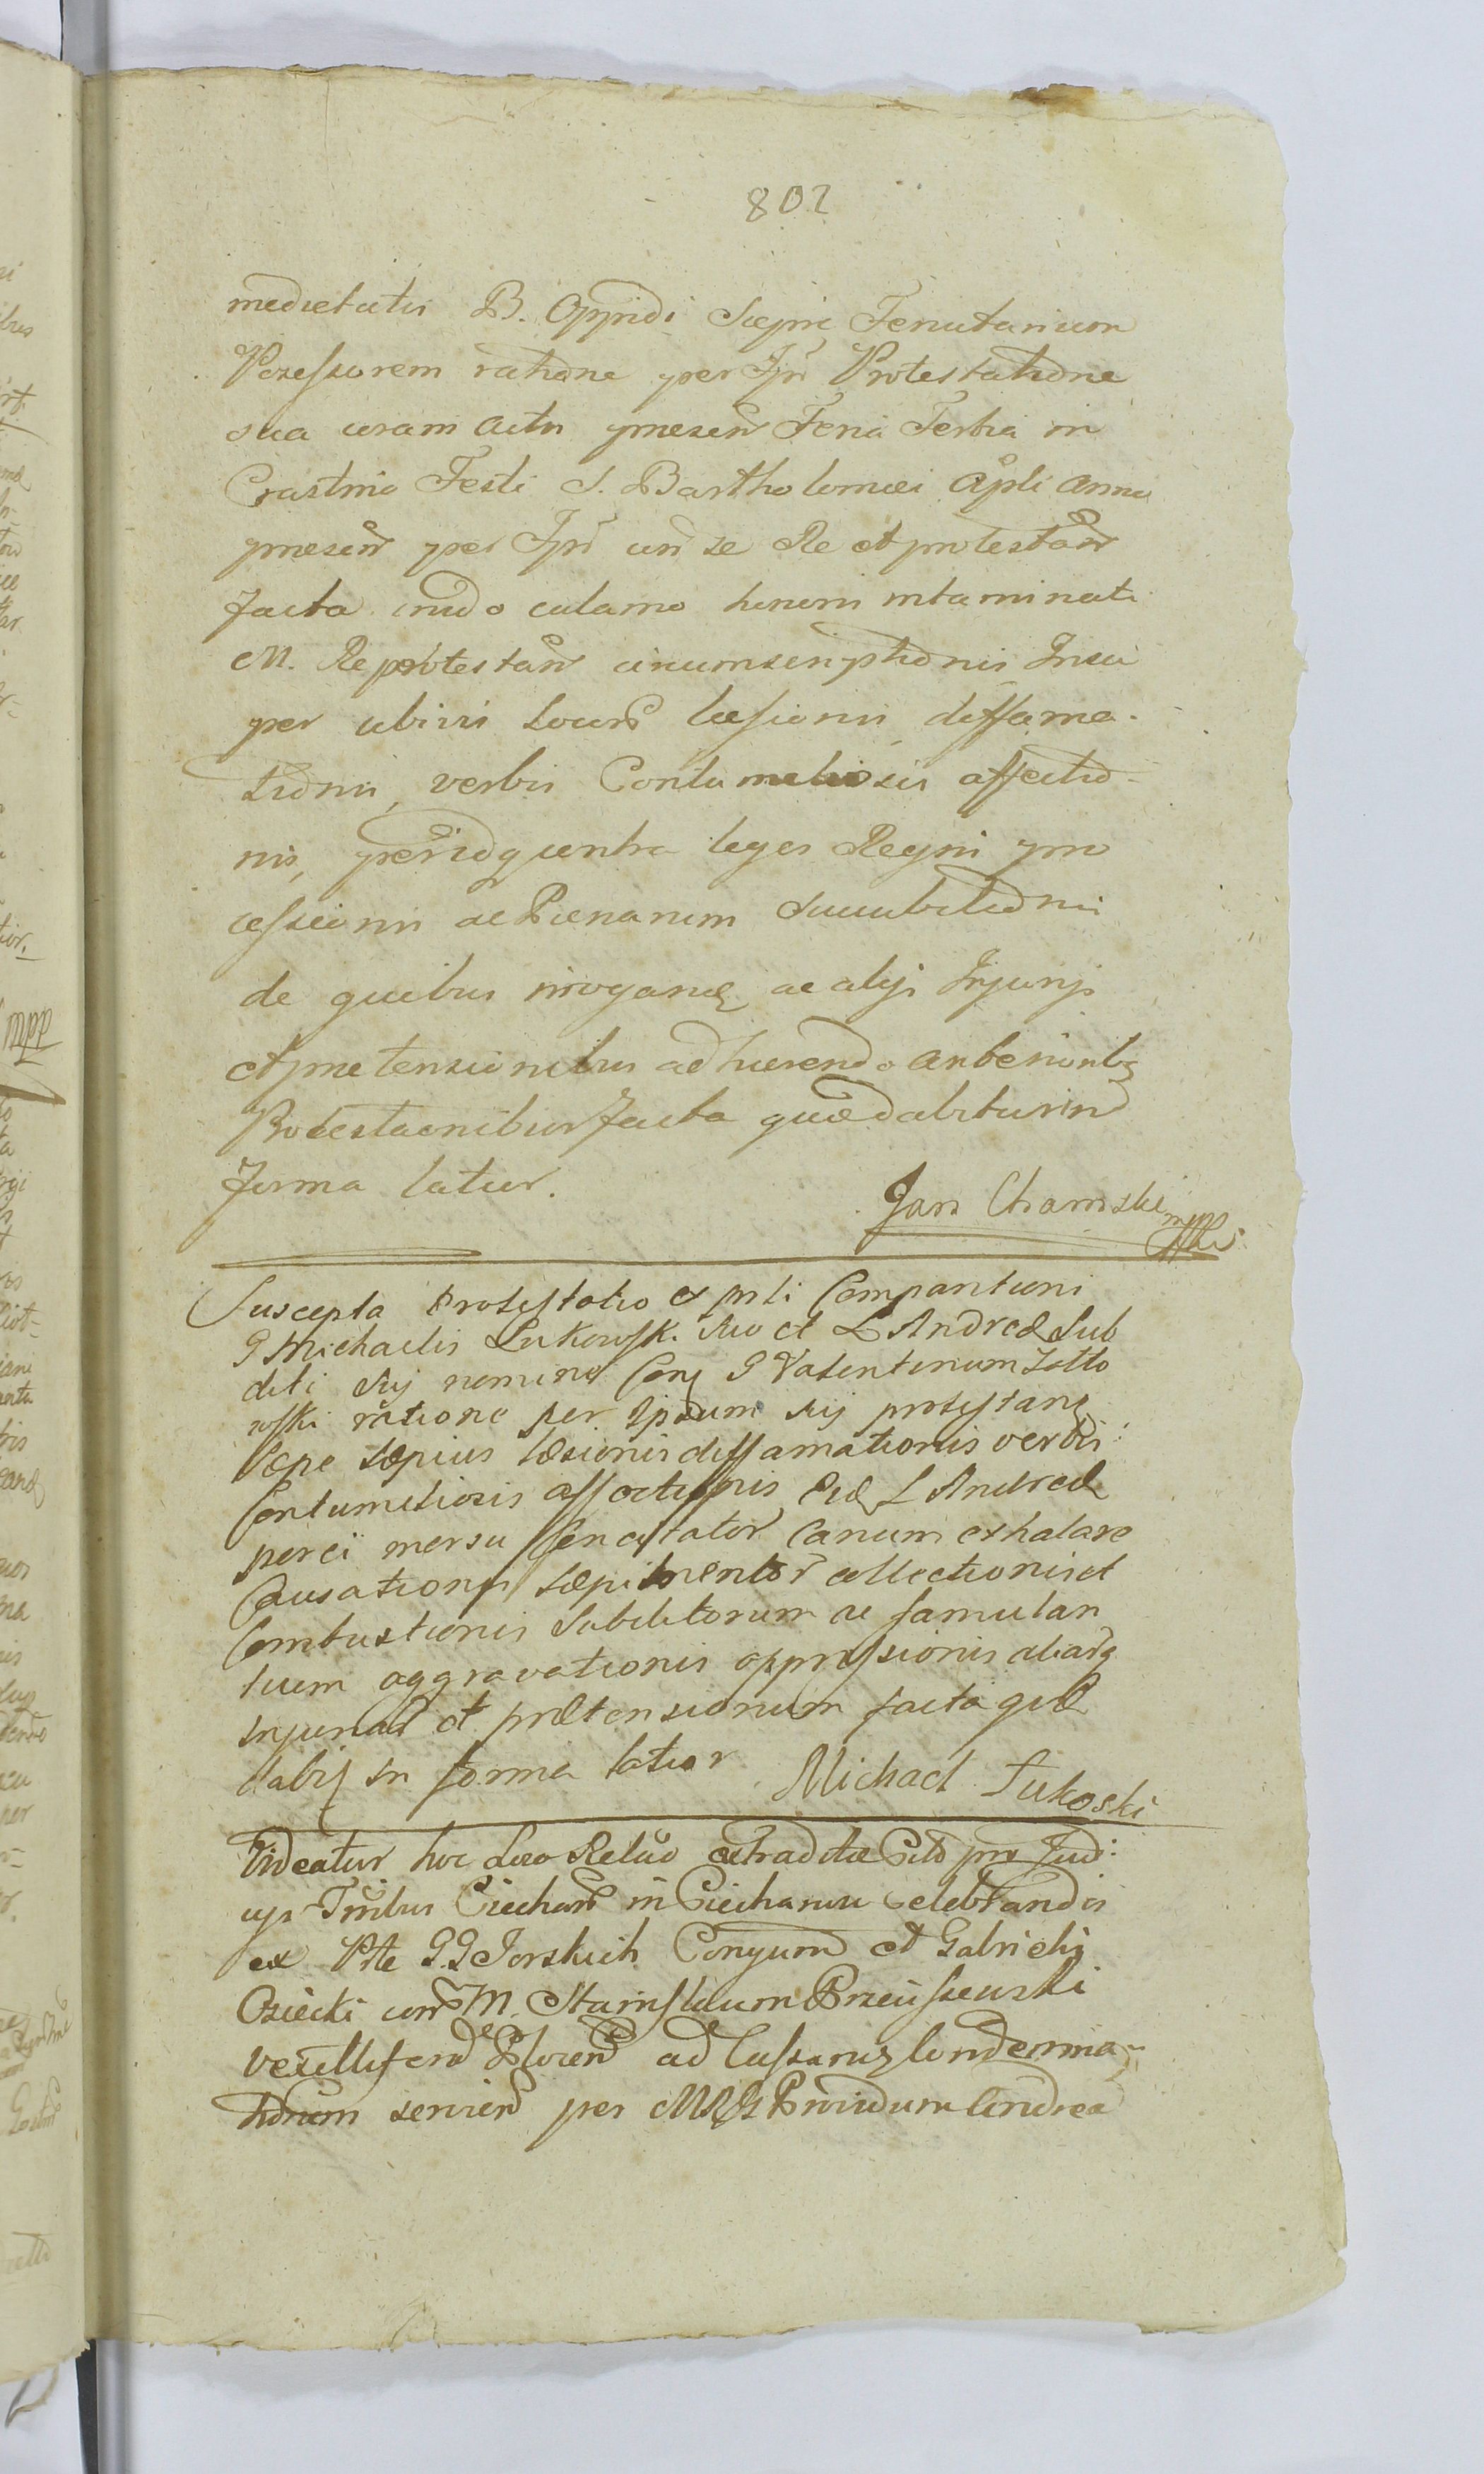 802
medietatis B. Oppidi Sierpc Tenutarium
Possessorem rathone per Ipm̄ Protestatione
sua coram Actis praesen Feria Tertia in
Crastino Festi S. Bartholomæi Apli anno
praesen per Ipm̄ con se Re et protestan
facta nudo calamo honoris intaminati
M. Reprotestan circumscriptionis Insu
per ubivis Locorū læsionis diffama-
tionis, verbis Contumeliosis affectio-
nis, contra leges Regni pro
cessionis ac Pœnarum succubitionis
de quibus irrogan ac alijs Injurijs
et prætensionibus adhærendo anteriorib9
Protestaonibus facta quæ dabitur in
forma latior.
Jan Chamski mpp
Suscepta Protestatio ex prti Comparitioni
G Michaelis Lukowski suo et L Andreæ Sub
diti Sui nomine Con G Valentinum Zotto
wski ratione per Ipsum Sui protestan
sæpe sæpius læsionis diffamationis verbis
Contumeliosis affectionis L Andreæ
porci morsu canum exhalare
Causationis sæpimentor collectionis et
Combustionis Subditorum ac famulan
tium aggravationis oppressionis aliarq
injuriar et prætensionum facta quæ
dabit in forma latior
Michael Łukoski
Videatur hoc Loco Relao extraditæ pro Judi:
cijs Tribus Ciechan in Ciechanow Celebrandis
ex Pte G.G Gorskich Conjugum et Gabrielis
Osiecki con M. Stanislaum Brzeiszewski
vexilliferd Plocen ad Cassanz Condemna-
tionum servien per Providum Andrea